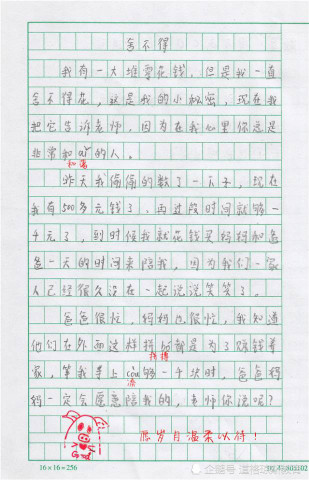 舍不得
我有一大堆零花钱，但是我一直
舍不得花，这是我的小秘密，现在我
把它告诉老师，因为在我心里你还是
非常和ǎi的人。
和蔼
昨天我偷偷的数了一下子，现在
我有500多元钱了、再过段时间就够一
千元了，到时候我就花钱买妈妈和爸
爸一天的时间来陪我，因为我们一家
人已经很久没在一起说说笑笑了。
爸爸很忙，妈妈也很忙，我知道
他们在外面这样拼bó都是为了赚钱养
拼搏
家，等我手上còu够一千块时，爸爸妈
凑
妈一定会愿意陪我的，老师你说呢？
Good
愿岁月温柔以待！
16×16=256